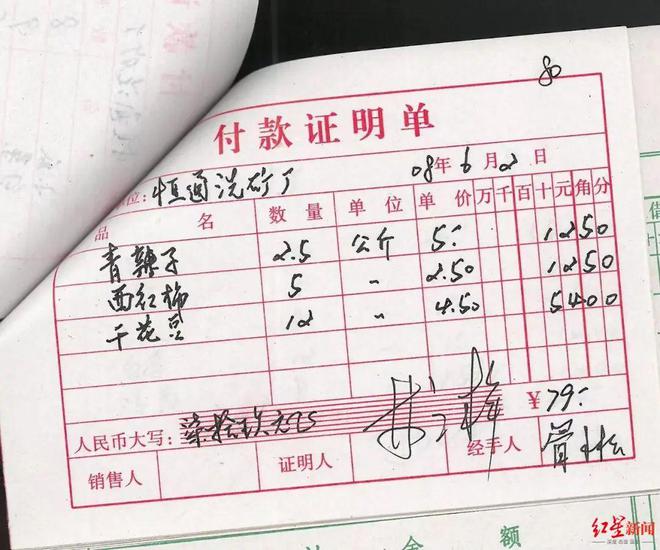 80
付款证明单
位:恒通洗矿厂 08年6月2日
品名 数量 单位 单价 万千百十元角分
青辣子 2.5 公斤 5- 1250
西红柿 5 〃 2.50 1250
干花豆 12 〃 4.50 5400
人民币大写: 柒拾玖元 ¥79-
销售人 证明人 经手人
金 额
借
红星新闻